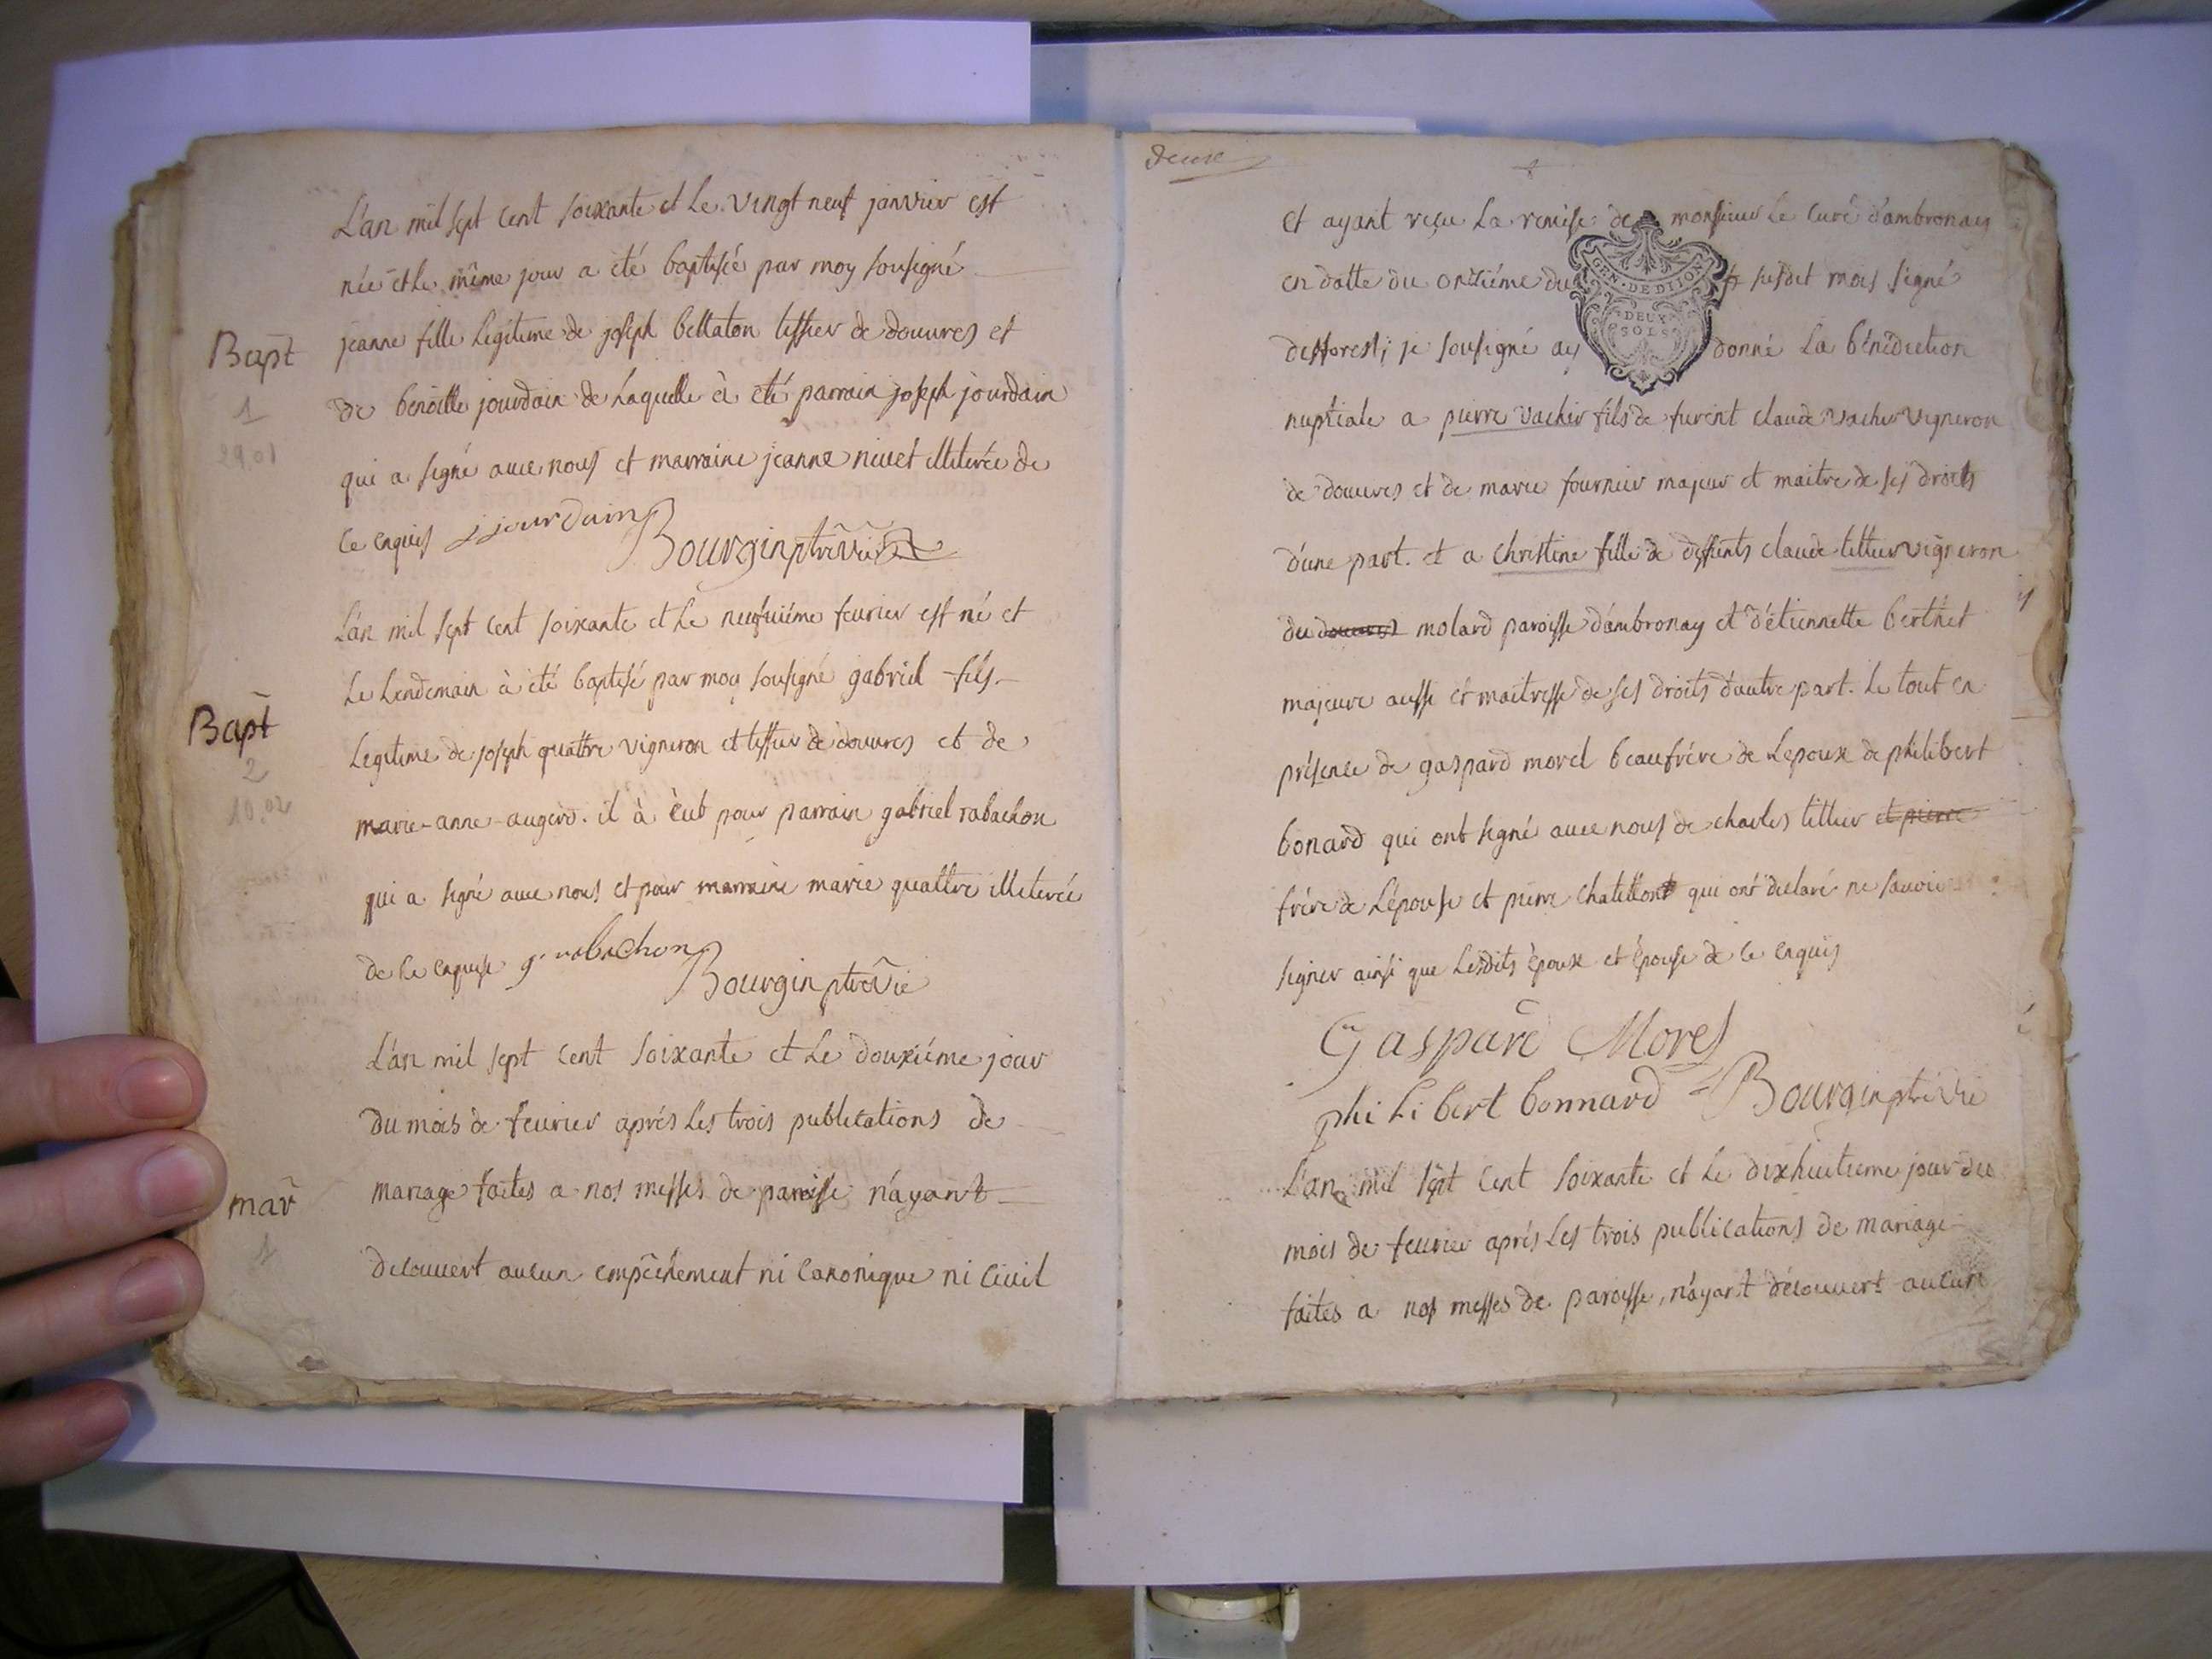 L'an mil sept cent soixante et le vingt neuf janvier est
née et le même jour a été baptisée par moy sousigné
Bapt
jeanne fille legitime de joseph bellaton tissier de douvres et
1
de benoitte jourdain de laquelle à été parrain joseph jourdain
29.01
qui a signé avec nous et marraine jeanne nivet illiterée de
ce enquis jjourdain
Bourgin ptre vic
L'an mil sept cent soixante et le neufvième fevrier est né et
le lendemain à été baptisé par moy sousigné gabriel fils
Bapt
legitime de joseph quattre vigneron et tissier de douvres et de
2
10.02
marie-anne augerd. il à èut pour parrain gabriel rabachon
qui a signé avec nous et pour marraine marie quattre illiterée
de ce enquise g. rabachon
Bourgin ptre vic
L'an mil sept cent soixante et le douxiéme jour
du mois de fevrier aprés les trois publications de
mar
mariage faites a nos messes de paroisse n'ayant
1
decouvert aucun empêchement ni canonique ni civil
deuxe
et ayant reçu la remise de monsieur le curé d'ambronay
en datte du onziéme du susdit mois signé
desforest; je sousigné ay donné la bénédiction
GEN. DE DIJON
DEUX
SOLS
nuptiale a pierre vacher fils de furent claude vacher vigneron
de douvres et de marie fournier majeur et maitre de ses droits
d'une part. et a christine fille de deffunts claude tettier vigneron
du douvres molard paroisse d'ambronay et d'étiennette berthet
majeure aussi et maitresse de ses droits d'autre part. le tout en
présence de gaspard morel beaufrére de l'epoux de philibert
bonard qui ont signé avec nous de charles tettier et pierre
frére de l'épouse et pierre chatillont qui ont declaré ne savoir
signer ainsi que lesdits époux et épouse de ce enquis
Gaspard Morel
philibert bonnard Bourgin ptre vic
L'an mil sept cent soixante et le dixhuitieme jour du
mois de fevrier aprés les trois publications de mariage
faites a nos messes de paroisse, n'ayant découvert aucun